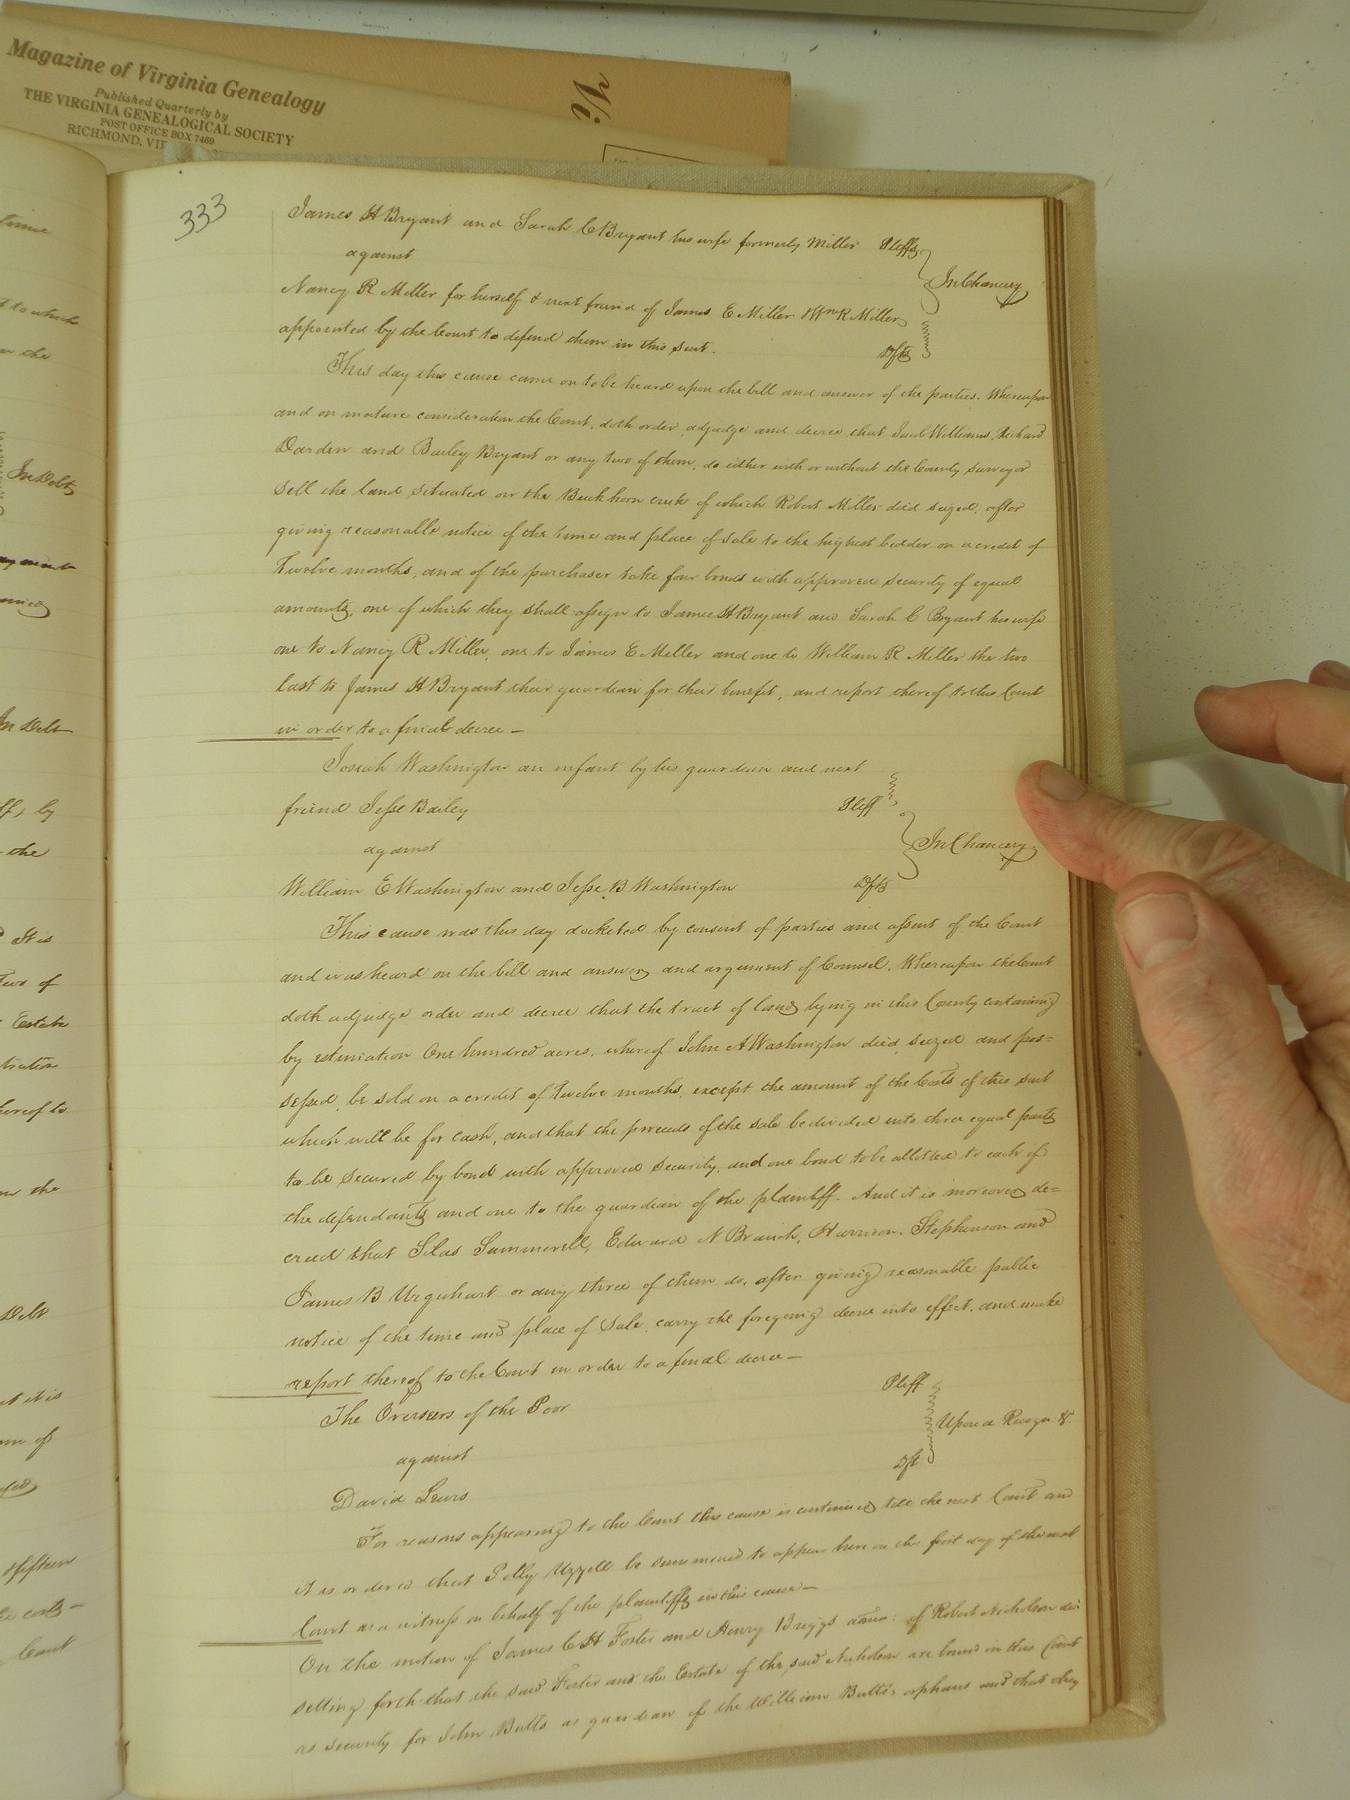 Magazine of Virginia Genealogy
Published Quarterly by
THE VIRGINIA GENEALOGICAL SOCIETY
POST OFFICE BOX 7469
RICHMOND, VI
Vi
333
James H Bryant and Sarah C Bryant his wife formerly Miller Plffs
against
In Chancery
Nancy R Miller for herself & next friend of James E Miller & Wm R Miller
appointed by the Court to defend them in this suit. Dfts
This day this cause came on to be heard upon the bill and answer of the parties. Whereupon
and on mature consideration the Court, doth order adjudge and decree that Jacob Williams, Richard
Darden and Bailey Bryant or any two of them, do either with or without the County surveyor
sell the land situated on the Buckhorn creek of which Robert Miller died seized, after
giving reasonable notice of the time and place of sale to the highest bidder on a credit of
twelve months, and of the purchaser take four bonds with approved security of equal
amounts, one of which they shall assign to James H Bryant and Sarah C Bryant his wife
one to Nancy R Miller, one to James E Miller and one to William R Miller the two
last to James H Bryant their guardian for their benefit, and report thereof to this Court
in order to a final decree —
Josiah Washington an infant by his guardian and next
friend Jesse Bailey Plff
against
In Chancery
William E Washington and Jesse B Washington Dfts
This cause was this day docketed by consent of parties and assent of the Court
and was heard on the bill and answers and argument of Counsel. Whereupon the Court
doth adjudge order and decree that the tract of land lying in this County containing
by estimation One hundred acres, whereof John A Washington died, seized and pos=
sessed, be sold on a credit of twelve months, except the amount of the Costs of this suit
which will be for cash, and that the proceeds of the sale be divided into three equal parts
to be secured by bond with approved security, and one bond to be allotted to each of
the defendants and one to the guardian of the plaintiff. And it is moreover de=
creed that Silas Summerell, Edward N Branch, Harrison Stephenson and
James B Urquhart or any three of them do, after giving reasonable public
notice of the time and place of Sale, carry the foregoing decree into effect, and make
report thereof to the Court in order to a final decree —
The Overseers of the Poor Plff
against
Upon a Recogn: &
David Lewis Dft
For reasons appearing to the Court this cause is continued till the next Court and
it is ordered that Polly Uzzell be summoned to appear here on the first day of the next
Court as a witness on behalf of the plaintiffs in this cause —
On the motion of James C H Foster and Henry Briggs admr. of Robert Nicholson dec
setting forth that the said Foster and the Estate of the said Nicholson are bound in this Court
as security for John Butts as guardian of the William Butts orphans and that they